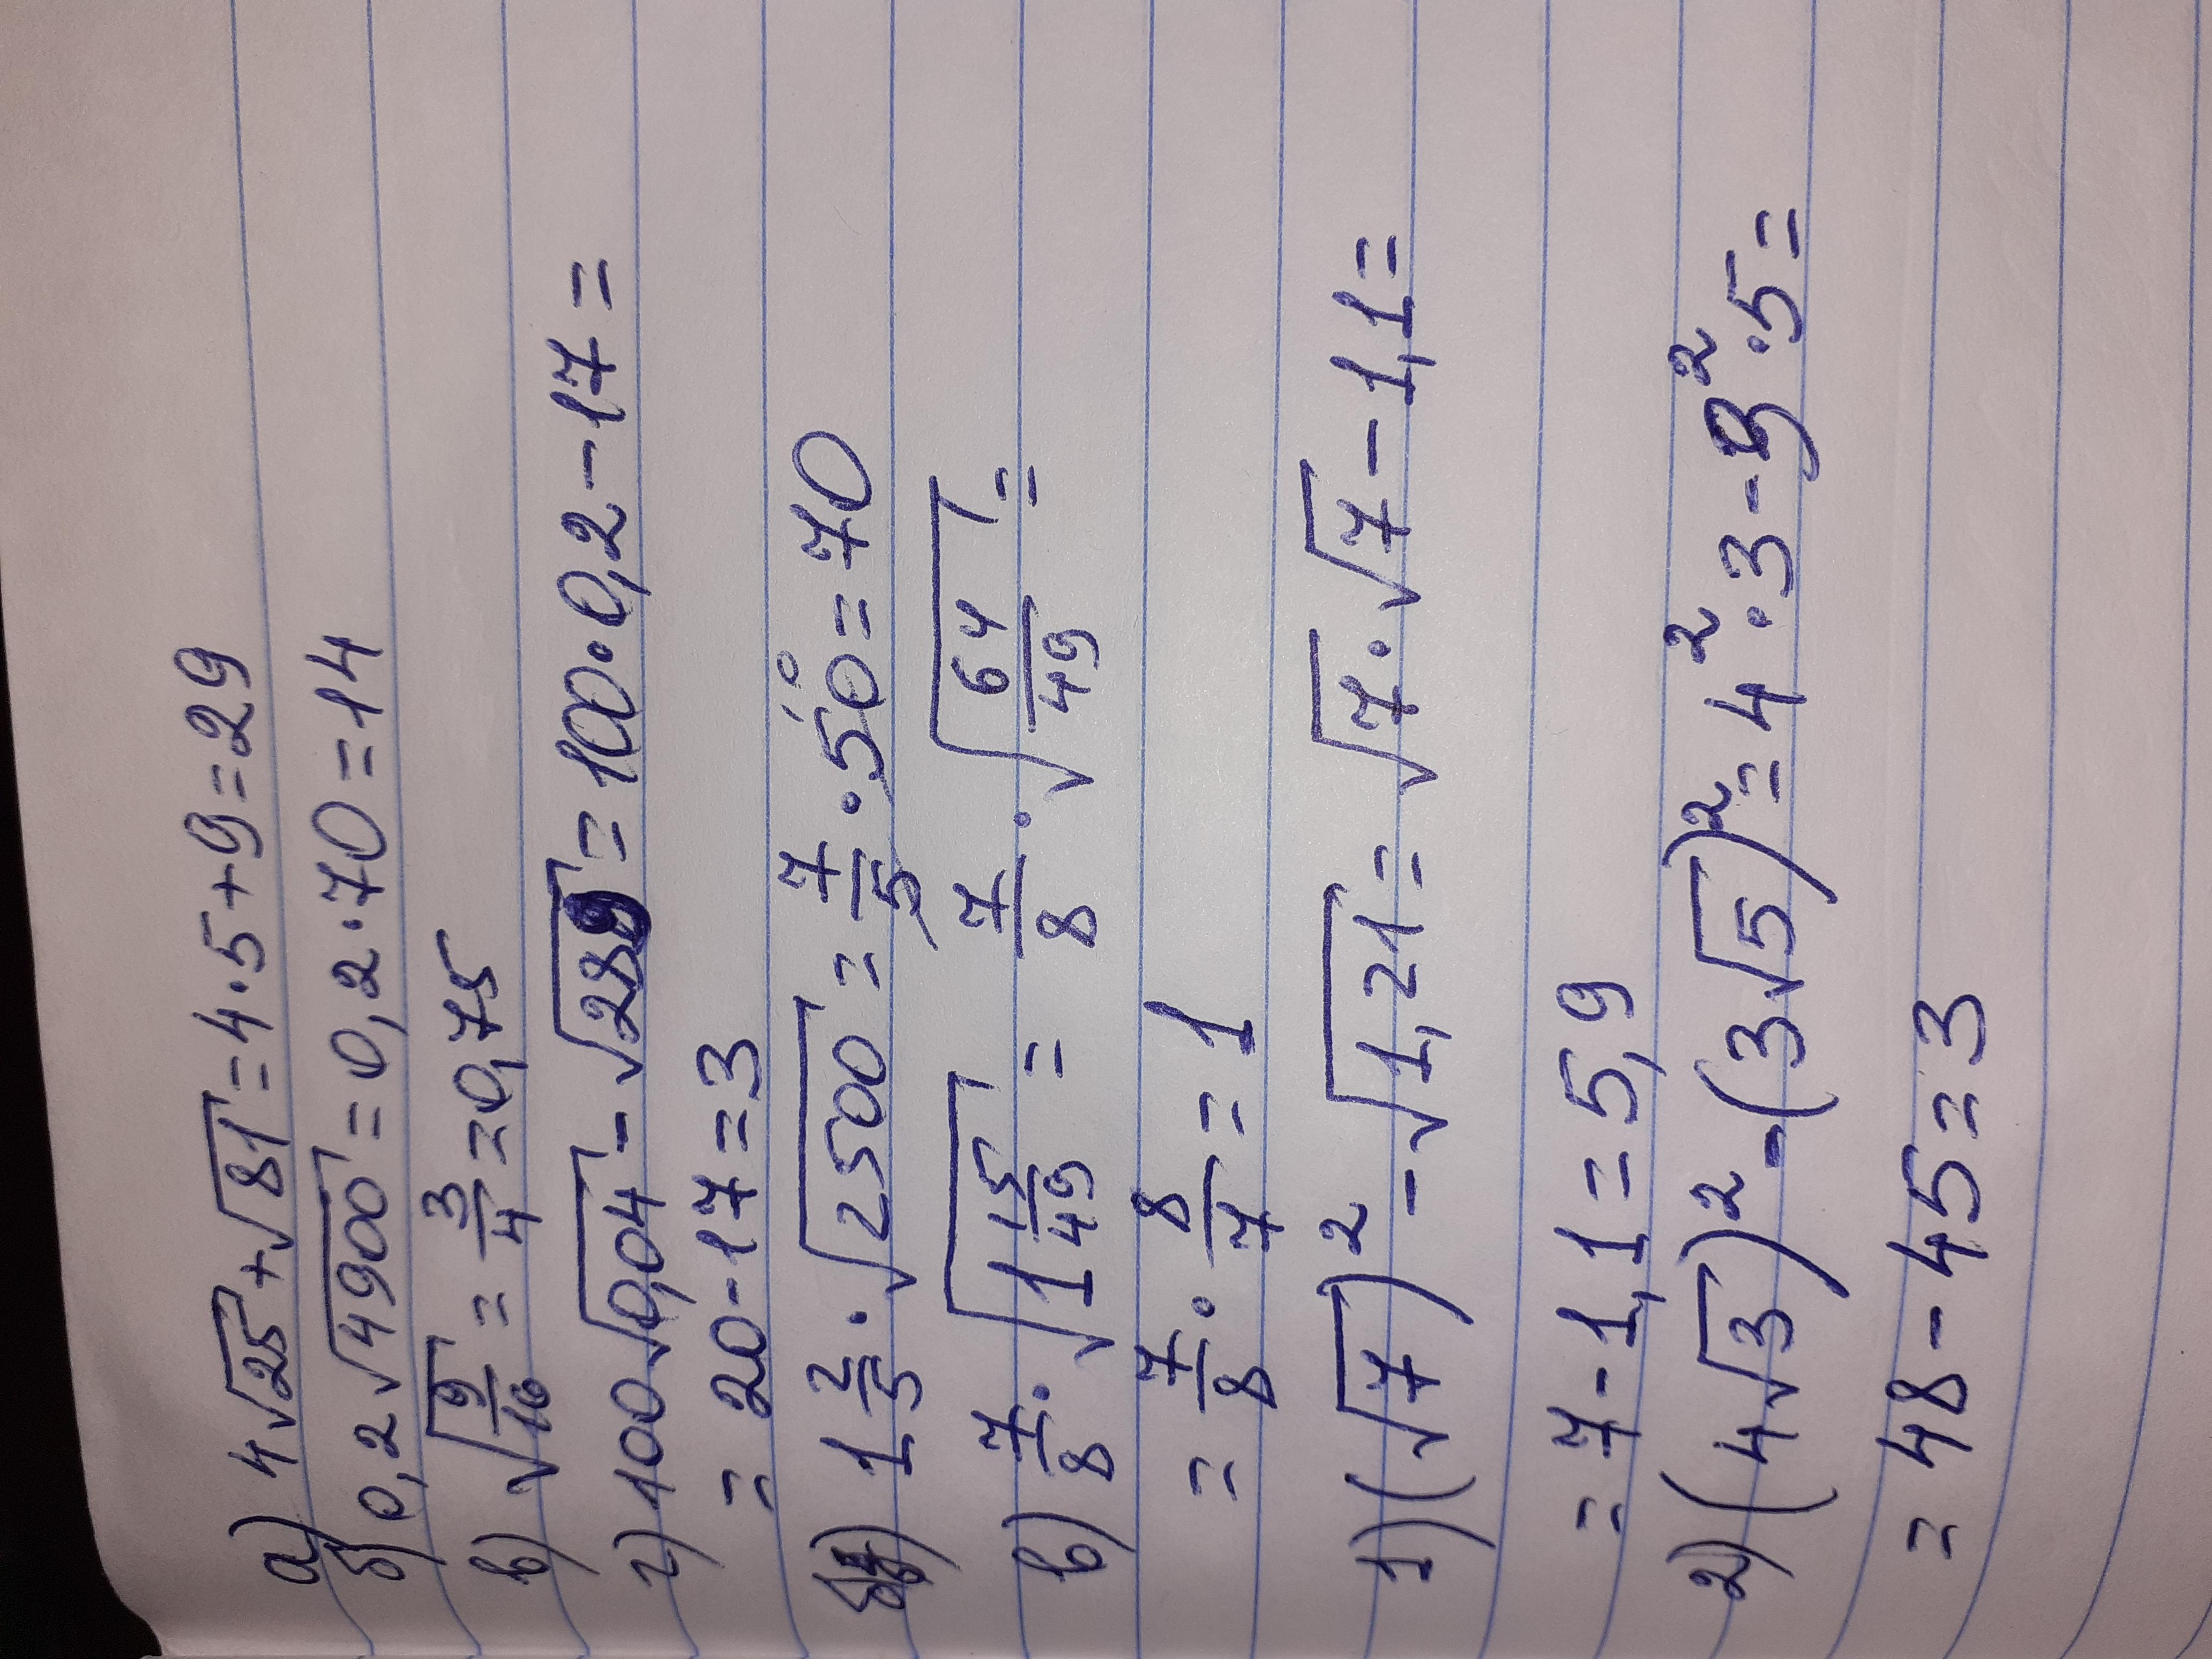 а) 4√25 + √81 = 4·5+9=29
б) 0,2√4900 = 0,2·70=14
в) √(9/16) = 3/4 = 0,75
г) 100√0,04 - √289 = 100·0,2-17=
= 20-17=3
1 2/5 · √2500 = 7/5 · 50 = 70
в) 7/8 · √(1 15/49) = 7/8 · √(64/49) =
= 7/8 · 8/7 = 1
1) (√7)² - √1,21 = √7 · √7 - 1,1=
= 7-1,1=5,9
2) (4√3)² - (3√5)² = 4²·3 - 3²·5=
= 48-45=3